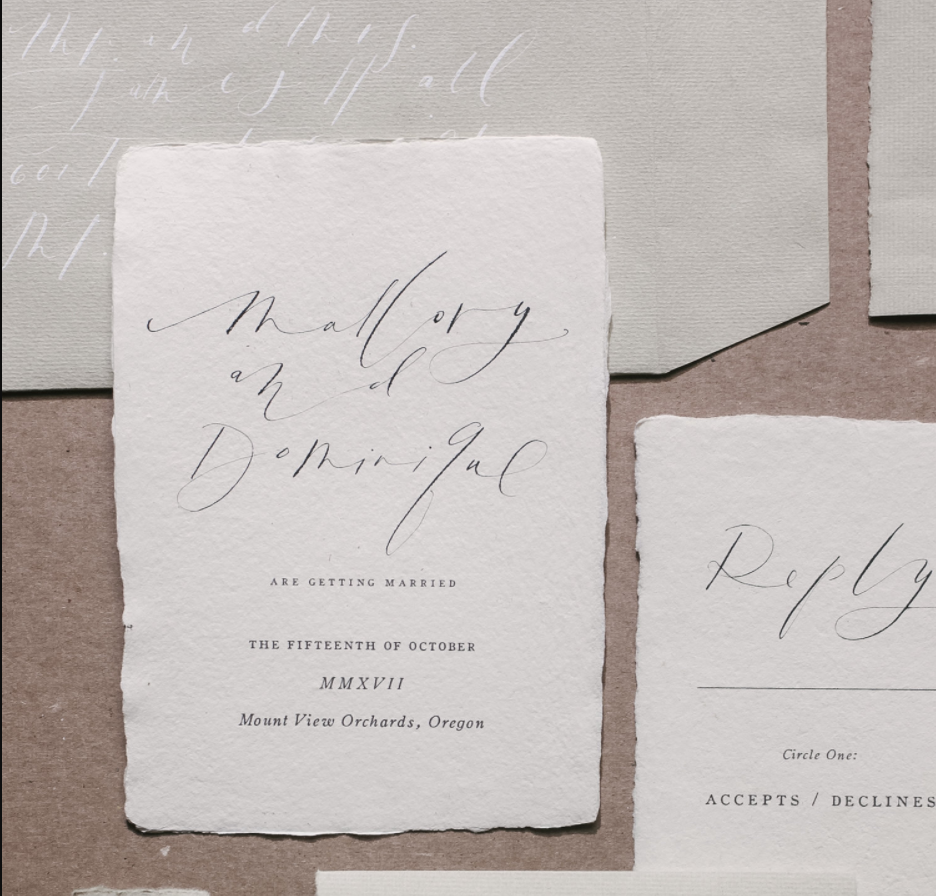 Mallory
and
Dominique
ARE GETTING MARRIED
THE FIFTEENTH OF OCTOBER
MMXVII
Mount View Orchards, Oregon
Reply
Circle One:
ACCEPTS / DECLINES